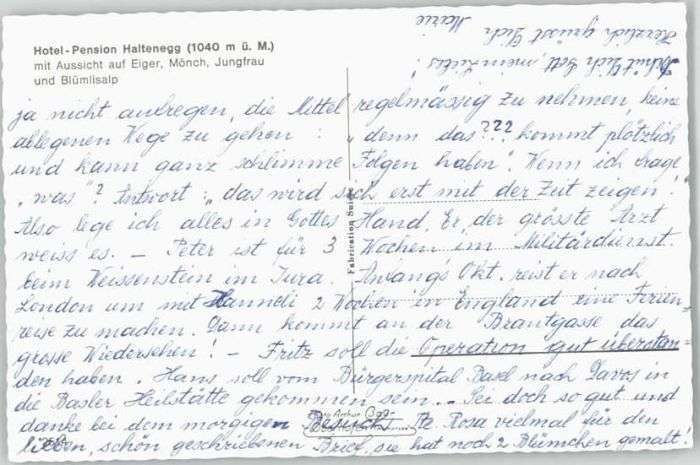 Hotel-Pension Haltenegg (1040 m ü. M.)
mit Aussicht auf Eiger, Mönch, Jungfrau
und Blümlisalp
ja nicht aufregen, die Mittel regelmässig zu nehmen, keine
ablegenen Wege zu gehen: "denn das??? kommt plötzlich
und kann ganz schlimme Folgen haben". Wenn ich frage
"was"? Antwort: "das wird sich erst mit der Zeit zeigen!"
Also lege ich alles in Gottes Hand. Er, der grösste Arzt
weiss es. – Peter ist für 3 Wochen im Militärdienst.
beim Weissenstein im Jura. Anfangs Okt. reist er nach
London um mit Hanneli 2 Wochen in England eine Ferien-
reise zu machen. Dann kommt an der Brantgasse das
grosse Wiedersehen! – Fritz soll die Operation gut überstan-
den haben. Hans soll vom Bürgerspital Basel nach Davos in
die Basler Heilstätte gekommen sein. – Sei doch so gut und
danke bei dem morgigen Besuch Rosa vielmal für den
lieben, schön geschriebenen Brief, sie hat noch 2 Blümchen gemalt!
Behüt Dich Gott, mein Liebes!
Herzlich grüsst Dich
Marie
Fabrication Suisse